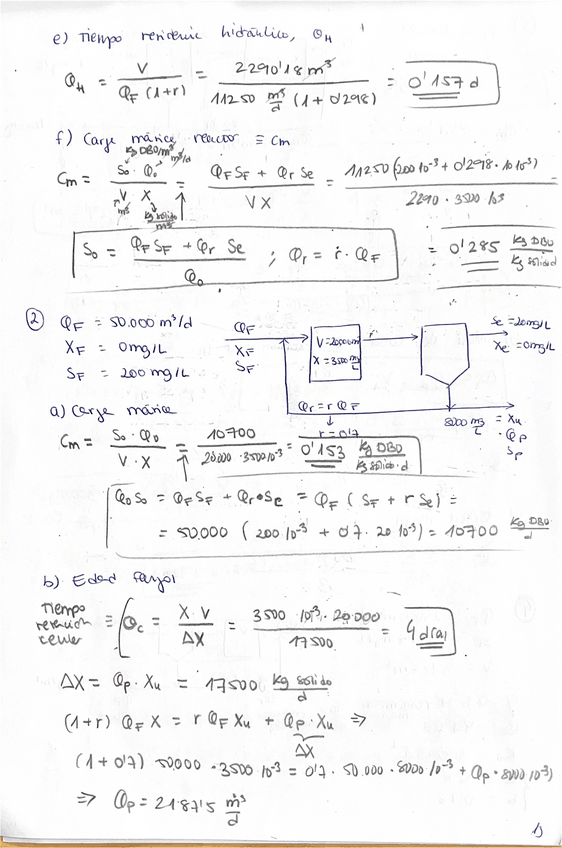 e) Tiempo residencia hidráulico, θH
θH = V / QF (1+r) = 2290'18 m³ / 11250 m³/d (1+0'298) = 0'157 d
f) Carga másica reactor ≡ Cm
Kg DBO/m³ m³/d
Cm = So · Qo / V · X = QF SF + Qr Se / V X = 11250 (200 10⁻³ + 0'298 · 10 10⁻³) / 2290 · 3500 10⁻³ =
m³ Kg sólido/m³
So = QF SF + Qr Se / Qo ; Qr = r · QF
= 0'285 Kg DBO / Kg sólido d
2 QF = 50.000 m³/d
XF = 0 mg/L
SF = 200 mg/L
QF
XF
SF
V = 20000 m³
X = 3500 mg/L
Se = 20 mg/L
Xe = 0 mg/L
Qr = r QF
r = 0'7
8000 mg/L = Xu
· Qp
Sp
a) Carga másica
Cm = So · Qo / V · X = 10700 / 20000 · 3500 10⁻³ = 0'153 Kg DBO / Kg sólido · d
Qo So = QF SF + Qr · Se = QF (SF + r Se) =
= 50.000 (200 10⁻³ + 0'7 · 20 10⁻³) = 10700 Kg DBO / d
b) Edad fango
Tiempo retención celular ≡ θc = X · V / ΔX = 3500 10⁻³ · 20.000 / 17500 = 4 días
ΔX = Qp · Xu = 17500 Kg sólido / d
(1+r) QF X = r QF Xu + Qp · Xu ⇒
ΔX
(1+0'7) 50.000 · 3500 10⁻³ = 0'7 · 50.000 · 8000 10⁻³ + Qp · 8000 10⁻³)
⇒ Qp = 2187'5 m³/d
1)